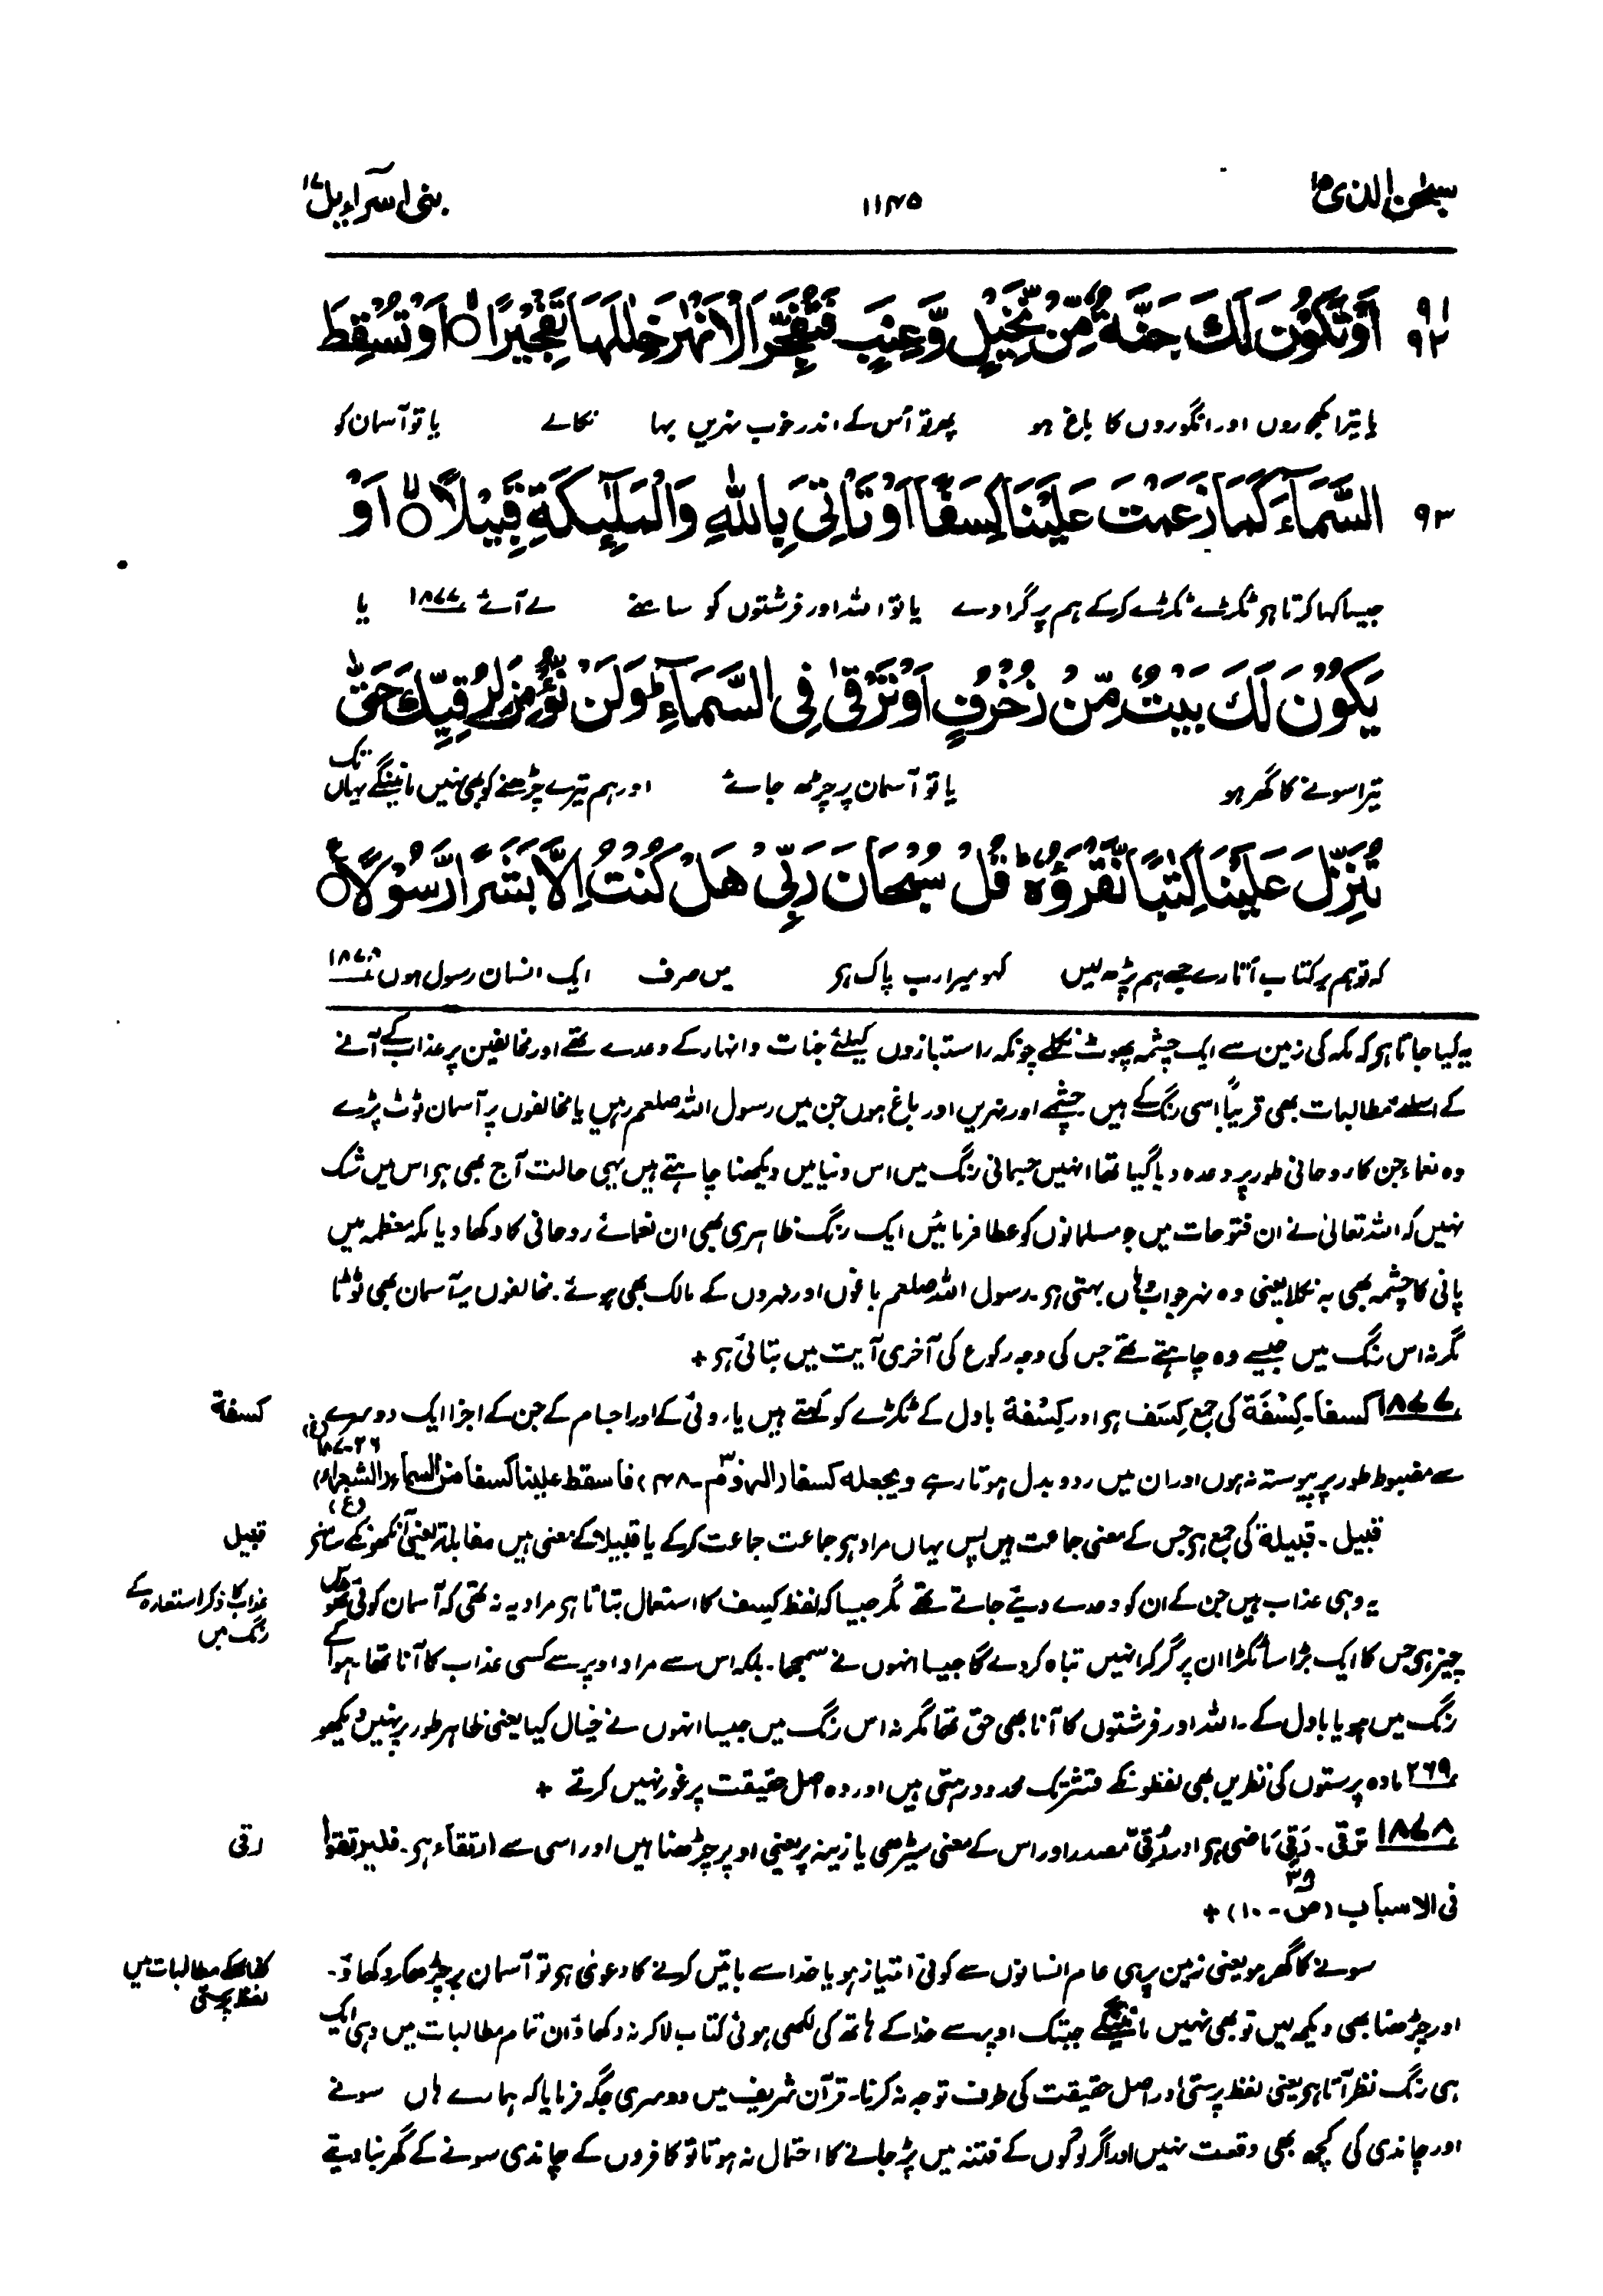 سبحٰن الذی ۱۵
۱۱۴۵
بنی اسرآءیل ۱۷
۹۱ اَوْ تَكُوْنَ لَكَ جَنَّةٌ مِّنْ نَّخِيْلٍ وَّعِنَبٍ فَتُفَجِّرَ الْاَنْهٰرَ خِلٰلَهَا تَفْجِيْرًا ۙ اَوْ تُسْقِطَ
۹۲
یا تیرا کھجوروں اور انگوروں کا باغ ہو پھر تو اُس کے اندر خوب نہریں بہا نکالے یا تو آسمان کو
۹۳ السَّمَآءَ كَمَا زَعَمْتَ عَلَيْنَا كِسَفًا اَوْ تَاْتِيَ بِاللّٰهِ وَالْمَلٰٓئِكَةِ قَبِيْلًا ۙ اَوْ
جیسا کہا کرتا ہو ٹکڑے ٹکڑے کرکے ہم پر گرا دے یا تو اللہ اور فرشتوں کو سامنے لے آئے ۱۸۷۷ یا
يَكُوْنَ لَكَ بَيْتٌ مِّنْ زُخْرُفٍ اَوْ تَرْقٰى فِي السَّمَآءِ ؕ وَلَنْ نُّؤْمِنَ لِرُقِيِّكَ حَتّٰى
تیرا سونے کا گھر ہو یا تو آسمان پر چڑھ جائے اور ہم تیرے چڑھنے کو بھی نہیں مانینگے یہاں تک
تُنَزِّلَ عَلَيْنَا كِتٰبًا نَّقْرَؤُهٗ ؕ قُلْ سُبْحَانَ رَبِّيْ هَلْ كُنْتُ اِلَّا بَشَرًا رَّسُوْلًا ۧ
کہ تو ہم پر کتاب اُتارے جسے ہم پڑھ لیں کہو میرا رب پاک ہو میں صرف ایک انسان رسول ہوں ۱۸۷۸
یہ کیا جاتا ہو کہ مکہ کی زمین سے ایک چشمہ پھوٹ نکلے چونکہ راستبازوں کیلئے جنات و انہار کے وعدے تھے اور مخالفین پر عذاب کے آنے
کے اسلئے مطالبات بھی قریباً اسی رنگ کے ہیں چشمے اور نہریں اور باغ ہوں جن میں رسول اللہ صلعم رہیں یا مخالفوں پر آسمان ٹوٹ پڑے
وہ نعماء جن کا روحانی طور پر وعدہ دیا گیا تھا انہیں جسمانی رنگ میں اس دنیا میں دیکھنا چاہتے ہیں یہی حالت آج بھی ہو اس میں شک
نہیں کہ اللہ تعالیٰ نے ان فتوحات میں جو مسلمانوں کو عطا فرمائیں ایک رنگ ظاہری بھی ان نعمائے روحانی کا دکھا دیا مکہ معظمہ میں
پانی کا چشمہ بھی بہ نکلا یعنی وہ نہر جو اب وہاں بہتی ہو۔ رسول اللہ صلعم باغوں اور نہروں کے مالک بھی ہوئے۔ مخالفوں پر آسمان بھی ٹوٹا
مگر نہ اس رنگ میں جیسے وہ چاہتے تھے جس کی وجہ رکوع کی آخری آیت میں بتائی ہو +
۱۸۷۷ کسفاً۔ کِسْفَة کی جمع کِسَف ہو اور کِسْفة بادل کے ٹکڑے کو کہتے ہیں یا روئی کے اور اجسام کے جن کے اجزا ایک دوسرے (غ)
کسفة
سے مضبوط طور پر پیوستہ نہ ہوں اور ان میں ردو بدل ہوتا رہے ویجعله کسفا (الروم ۳۰۔ ۴۸) فاسقط علینا کسفا من السماء (الشعراء ۲۶۔ ۱۸۷) (غ)
قبیل۔ قبیلة کی جمع ہو جس کے معنی جماعت ہیں پس یہاں مراد ہو جماعت جماعت کرکے یا قبیلا کے معنی ہیں مقابلة یعنی آنکھونکے سامنے
قبیل
یہ وہی عذاب ہیں جن کے ان کو وعدے دیئے جاتے تھے مگر جیسا کہ لفظ کِسف کا استعمال بتاتا ہو مراد یہ نہ تھی کہ آسمان کوئی ٹھوس
عذاب کا ذکر استعارہ کے
رنگ میں
چیز ہی جس کا ایک بڑا سا ٹکڑا ان پر گر کر انہیں تباہ کر دے گا جیسا انہوں نے سمجھا۔ بلکہ اس سے مراد اوپر سے کسی عذاب کا آنا تھا۔ ہوا کے
رنگ میں ہو یا بادل کے۔ اللہ اور فرشتوں کا آنا بھی حق تھا مگر نہ اس رنگ میں جیسا انہوں نے خیال کیا یعنی ظاہر طور پر نہیں دیکھو
۲۶۹ مادہ پرستوں کی نظریں بھی لفظونکے قشر تک محدود رہتی ہیں اور وہ اصل حقیقت پر غور نہیں کرتے +
۱۸۷۸ ترقی۔ رَقِیَ ماضی ہو اور رُقِیّ مصدر اور اس کے معنی سیڑھی یا زینہ پر یعنی اوپر چڑھنا ہیں اور اسی سے ارتقاء ہو۔ فلیرتقوا
رقی
فی الاسباب (ص ۳۸۔ ۱۰) +
سونے کا گھر ہو یعنی زمین پر ہی عام انسانوں سے کوئی امتیاز ہو یا خدا سے باتیں کرنے کا دعویٰ ہو تو آسمان پر چڑھ کر دکھاؤ۔
کفار کے مطالبات میں
لفظ پرستی
اور چڑھنا بھی دیکھ لیں تو بھی نہیں مانینگے جبتک اوپر سے خدا کے ہاتھ کی لکھی ہوئی کتاب لا کر نہ دکھاؤ ان تمام مطالبات میں وہی ایک
ہی رنگ نظر آتا ہو یعنی لفظ پرستی اور اصل حقیقت کی طرف توجہ نہ کرنا۔ قرآن شریف میں دوسری جگہ فرمایا کہ ہمارے ہاں سونے
اور چاندی کی کچھ بھی وقعت نہیں اور اگر لوگوں کے فتنہ میں پڑ جانے کا احتمال نہ ہوتا تو کافروں کے چاندی سونے کے گھر بنا دیتے